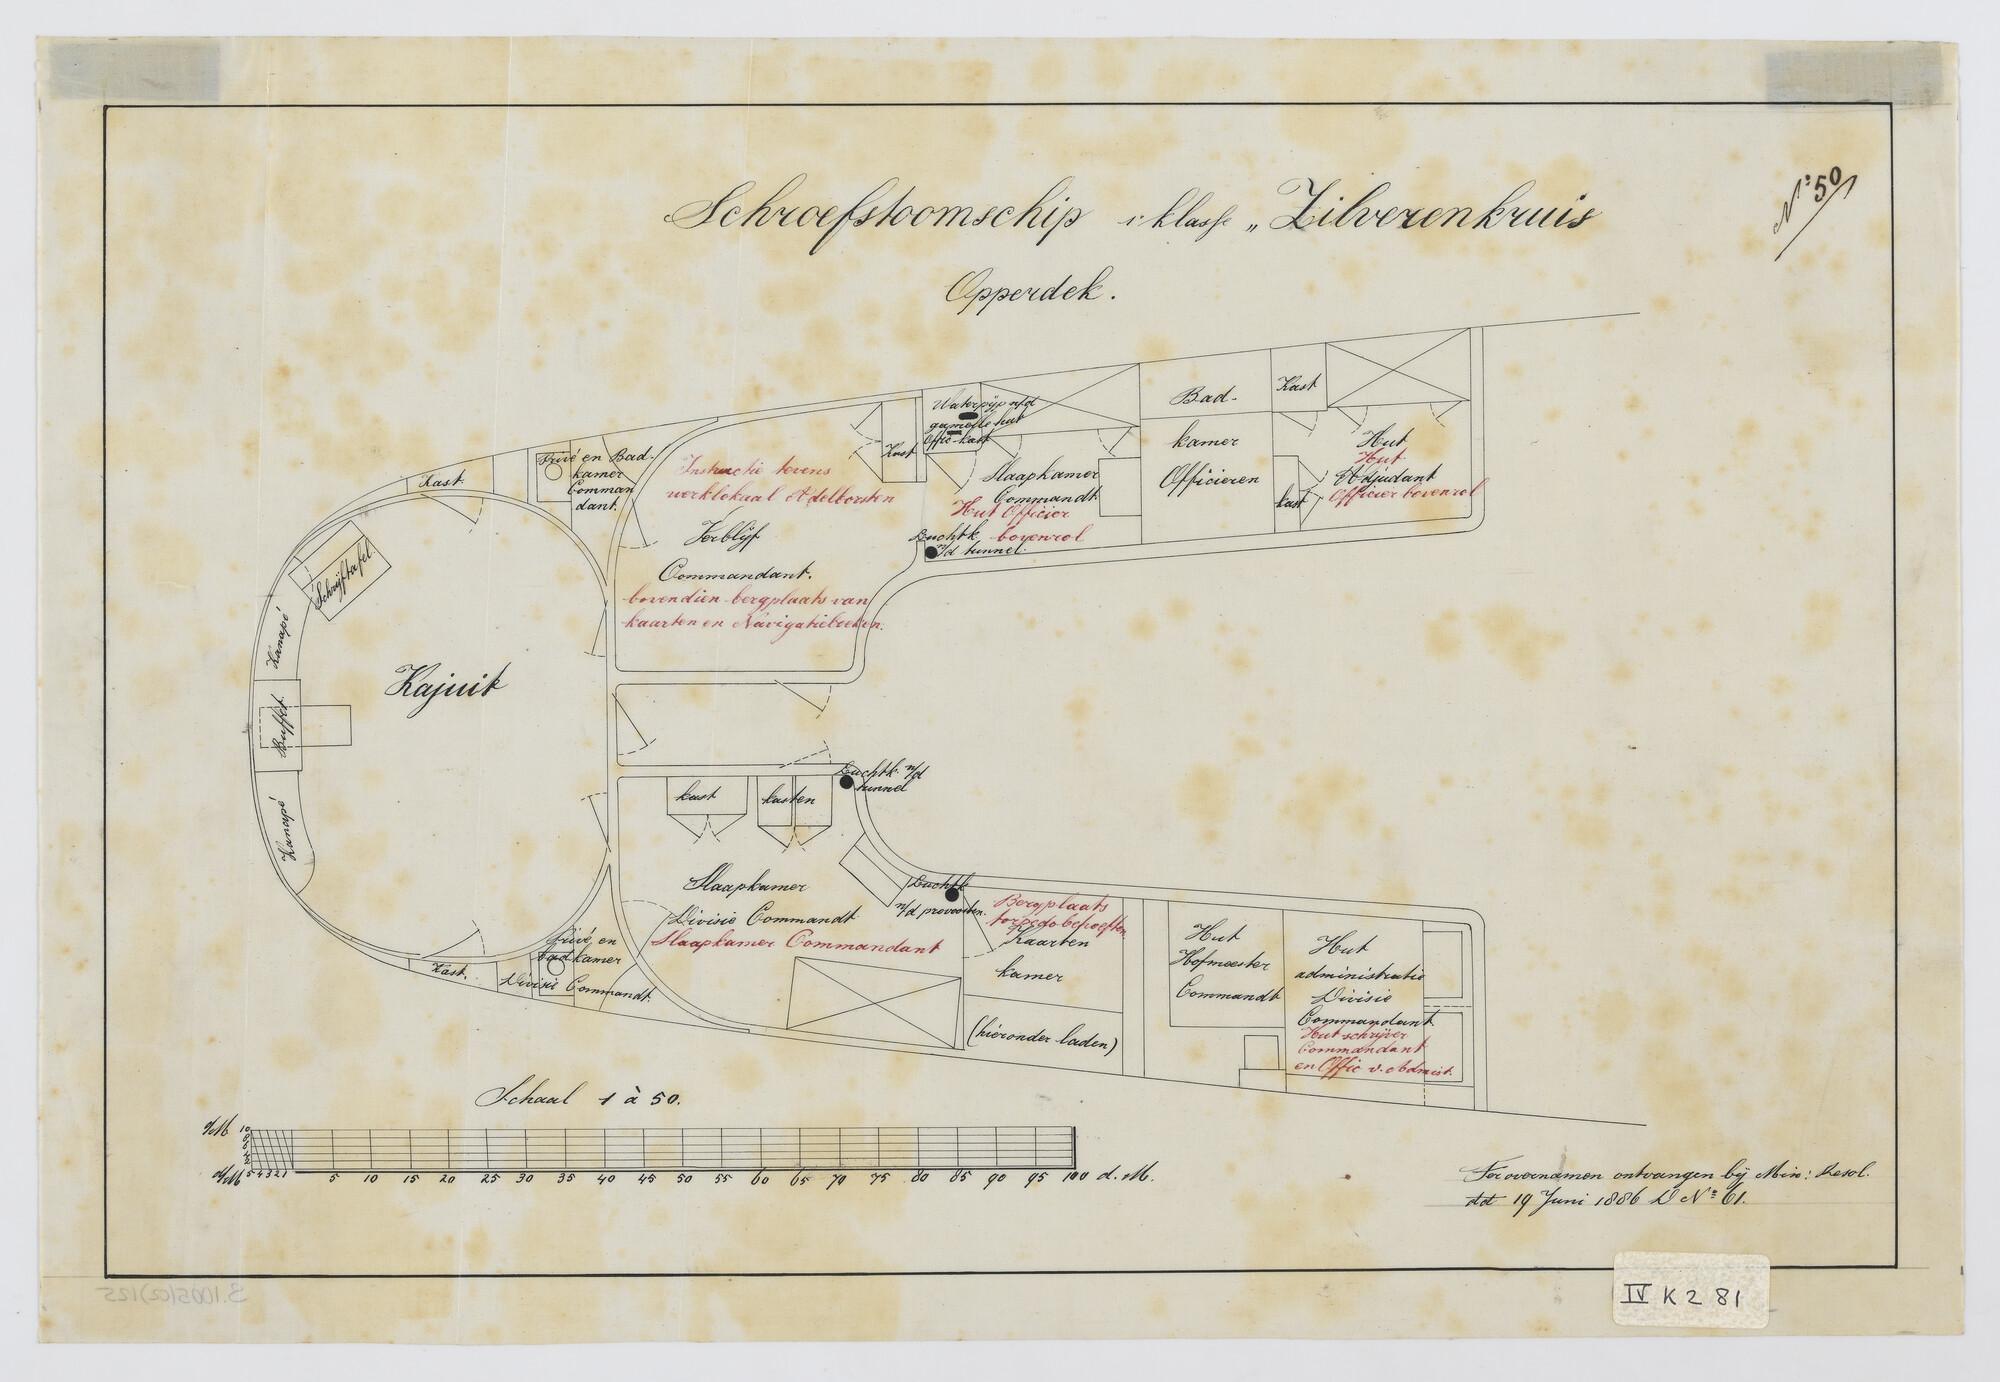 Schroefstoomschip 1e klasse „Zilverenkruis
Opperdek.
No 50
Kast
Privé en Bad-
kamer
Comman
dant.
Instructie tevens
werklokaal Adelborsten
Verblijf
Commandant.
bovendien bergplaats van
kaarten en Navigatieboeken.
Kast
Waterpijp n/d
gamelle hut
Offic-kast
Slaapkamer
Commandt
Hut Officier
bovenrol
Luchtk.
n/d tunnel.
Bad-
kamer
Officieren
Kast
kast
Hut
Hut
Adjudant
Officier bovenrol
Schrijftafel
Kanapé
Buffet
Kanapé
Kajuit
Luchtk. n/d
tunnel
kast
kasten
Slaapkamer
Divisie Commandt
Slaapkamer Commandant
Luchtk
n/d provoosten.
Bergplaats
torpedobehoeften
Kaarten
kamer
(hieronder laden)
Hut
Hofmeester
Commandt
Hut
administratie
Divisie
Commandant
Hut schrijver
Commandant
en Offic v. Admist.
Kast.
Privé en
badkamer
Divisie Commandt.
Schaal 1 à 50.
c/M 10 8 6 4 2
d/M 5 4 3 2 1 5 10 15 20 25 30 35 40 45 50 55 60 65 70 75 80 85 90 95 100 d.M.
Ter overnamen ontvangen bij Min: Resol.
dd 19 Juni 1886 D No 61.
S.1005(02)125
IV K 2 81